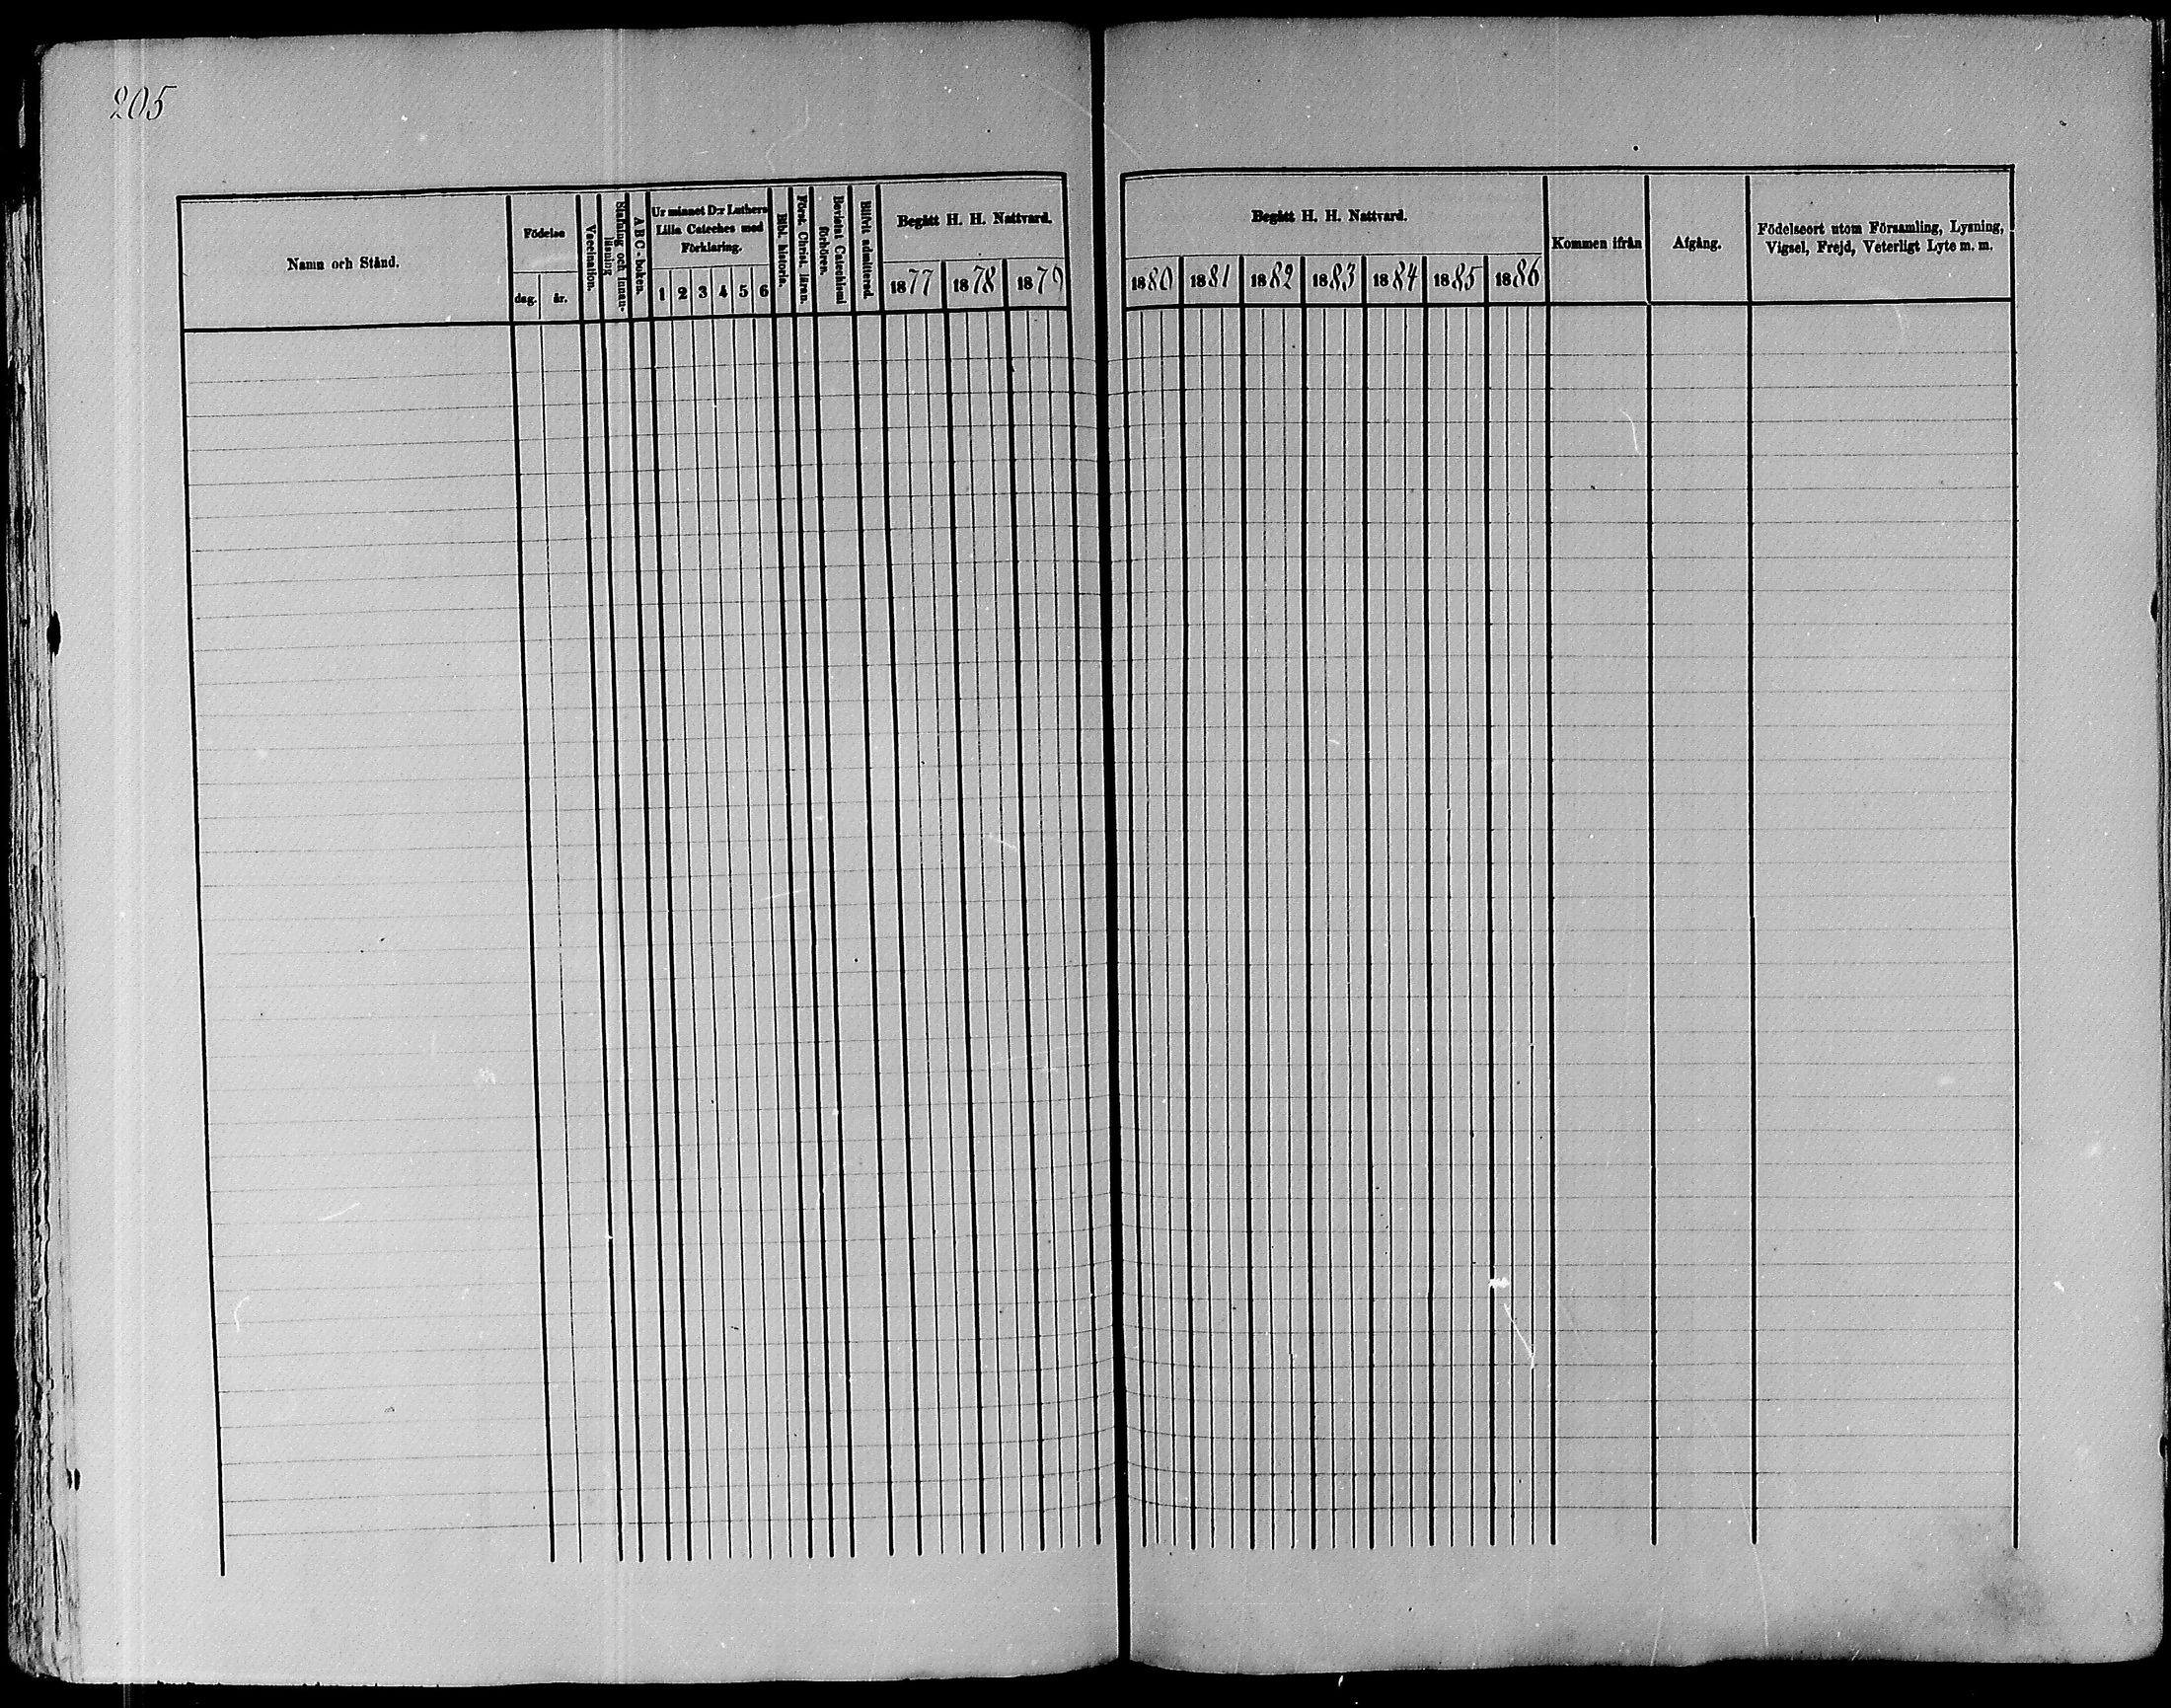 205
Namn och Stånd.
Födelse
dag. år.
Vaccination.
Stafning och Innan-
läsning
ABC-boken.
Ur minnet D:r Luthers
Lilla Cateches med
Förklaring.
1 2 3 4 5 6
Bibl. historia.
Först. Christ. läran.
Bevistat Catechismi
förhören.
Blifvit admitterad.
Begått H. H. Nattvard.
1877 1878 1879
Begått H. H. Nattvard.
1880 1881 1882 1883 1884 1885 1886
Kommen ifrån
Afgång.
Födelseort utom Församling, Lysning,
Vigsel, Frejd, Veterligt Lyte m. m.